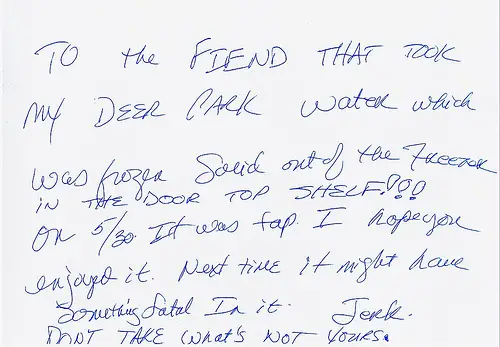 TO the FIEND THAT TOOK
MY DEER PARK Water which
was frozen Solid out of the Freezer
IN THE DOOR TOP SHELF!!!
ON 5/30. It was tap. I hope you
enjoyed it. Next time it might have
Something fatal In it. Jerk.
DON'T TAKE What's NOT YOURS.